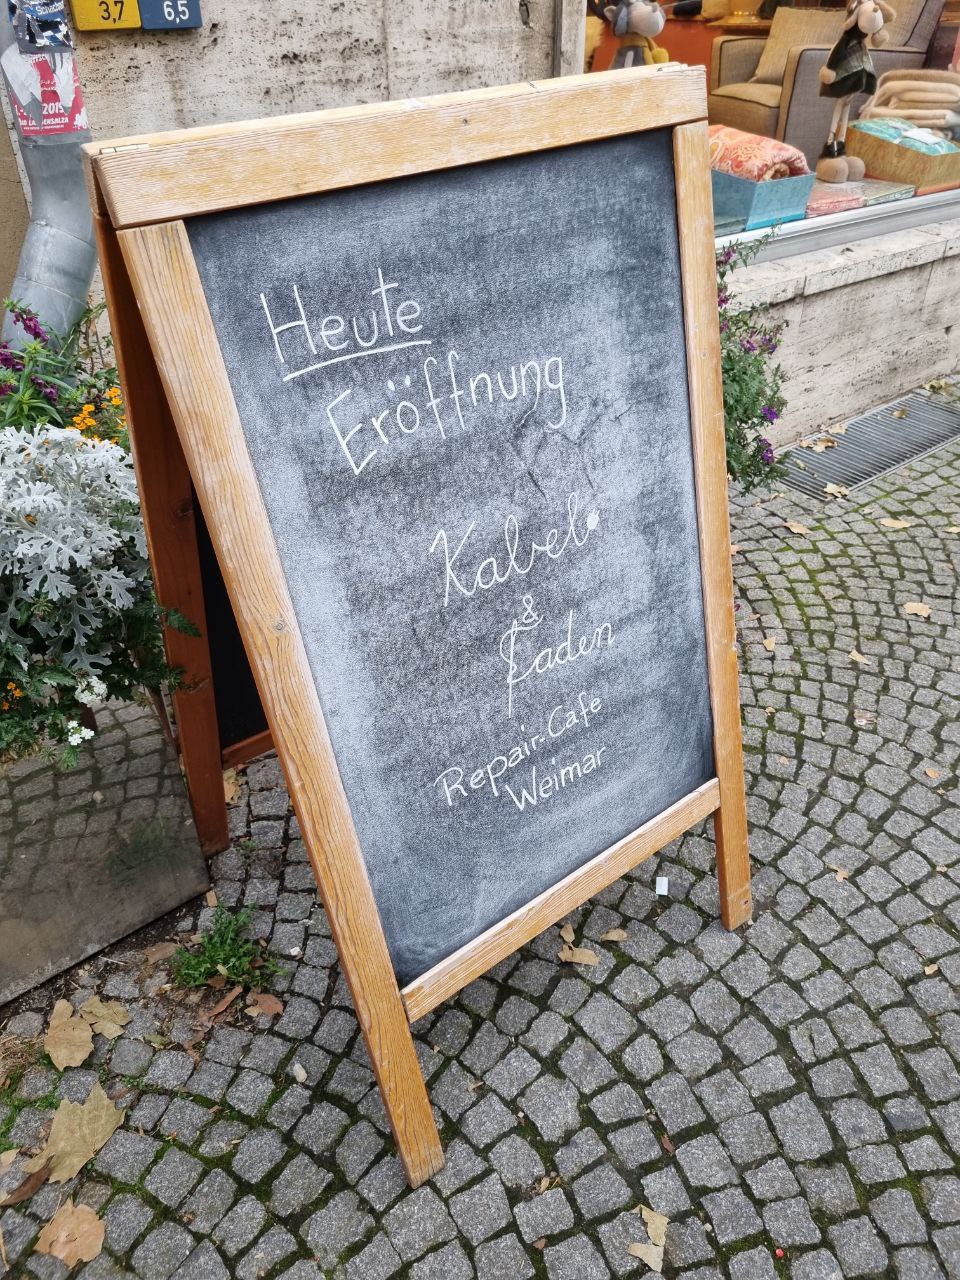 3,7
6,5
2019
Heute
Eröffnung
Kabel
&
Faden
Repair-Cafe
Weimar